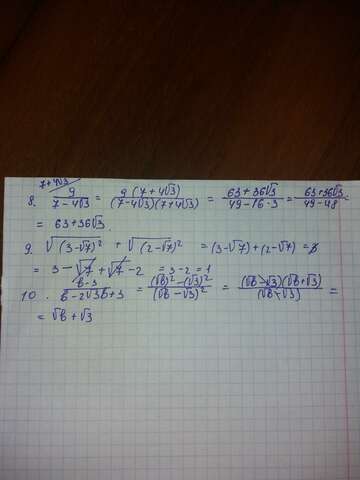 7+4√3
8. 9/(7-4√3) = 9(7+4√3)/((7-4√3)(7+4√3)) = (63+36√3)/(49-16·3) = (63+36√3)/(49-48) =
= 63+36√3.
9. √(3-√7)² + √(2-√7)² = (3-√7)+(2-√7) =
= 3-√7+√7-2 = 3-2 = 1
10. (b-3)/(b-2√3b+3) = ((√b)²-(√3)²)/(√b-√3)² = (√b-√3)(√b+√3)/(√b-√3) =
= √b+√3